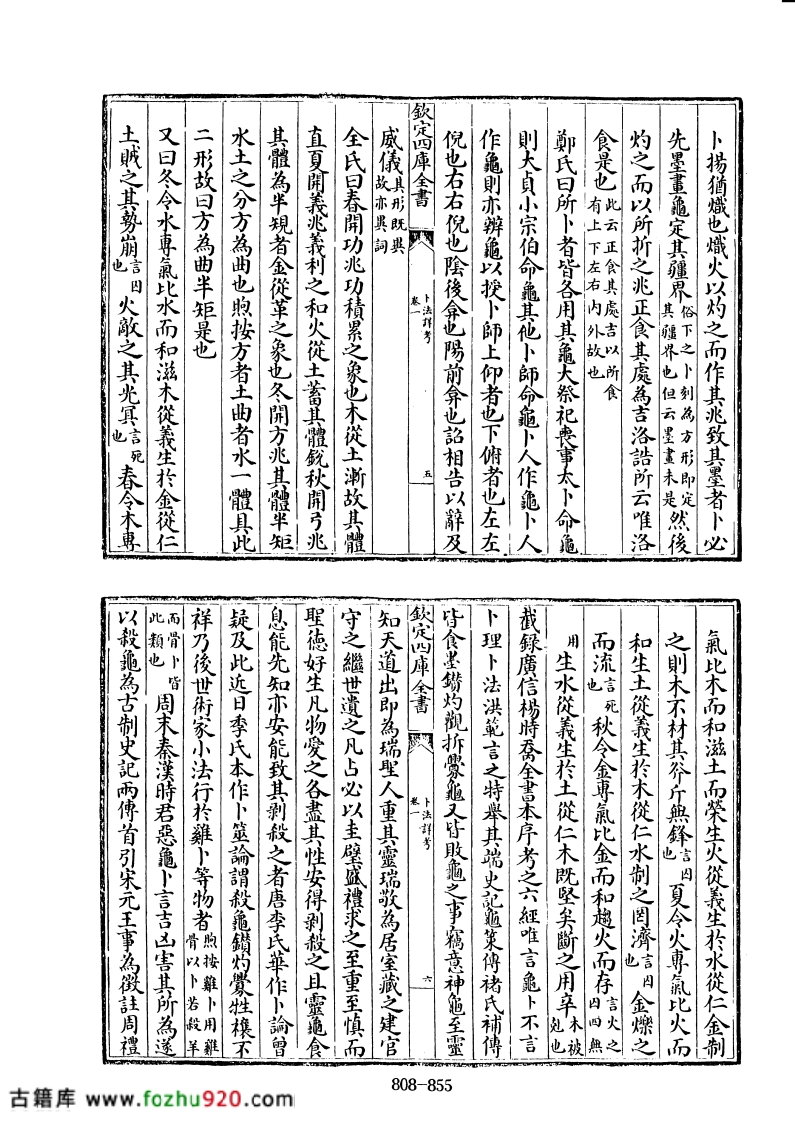 卜揚猶熾也熾火以灼之而作其兆致其墨者卜必
先墨畫龜定其疆界俗下之卜刻為方形即定其疆界也但云墨畫未是然後
灼之而以所折之兆正食其處為吉洛誥所云唯洛
食是也此云正食其處吉以所食有上下左右内外故也
鄭氏曰所卜者皆各用其龜大祭祀喪事太卜命龜
則大貞小宗伯命龜其他卜師命龜卜人作龜卜人
作龜則亦辨龜以授卜師上仰者也下俯者也左左
倪也右右倪也陰後弇也陽前弇也詔相告以辭及
欽定四庫全書
卜法詳考
卷一
五
威儀其形既異故亦異詞
全氏曰春開功兆功積累之象也木從土漸故其體
直夏開義兆義利之和火從土蓄其體銳秋開弓兆
其體為半規者金從革之象也冬開方兆其體半矩
水土之分方為曲也煦按方者土曲者水一體具此
二形故曰方為曲半矩是也
又曰冬令水專氣比水而和滋木從義生於金從仁
土賊之其勢崩言囚也火敵之其光冥言死也春令木專
氣比木而和滋土而榮生火從義生於水從仁金制
之則木不材其斧斤無鋒言囚也夏令火專氣比火而
和生土從義生於木從仁水制之罔濟言囚也金爍之
而流言死也秋令金專氣比金而和趨火而存言火之囚四無
用生水從義生於土從仁木既堅矣斷之用卒木被尅也
截錄廣信楊時喬全書本序考之六經唯言龜卜不言
卜理卜法洪範言之特舉其端史記龜策傳褚氏補傳
皆食墨鑽灼觀折釁龜又皆敗龜之事竊意神龜至靈
欽定四庫全書
卜法詳考
卷一
六
知天道出即為瑞聖人重其靈瑞敬為居室藏之建官
守之繼世遺之凡占必以圭璧盛禮求之至重至慎而
聖德好生凡物愛之各盡其性安得剥殺之且靈龜食
息能先知亦安能致其剥殺之者唐李氏華作卜論曾
疑及此近日李氏本作卜筮論謂殺龜鑽灼釁牲禳不
祥乃後世術家小法行於雞卜等物者煦按雞卜用雞骨以卜若殺羊
而骨卜皆此類也周末秦漢時君惡龜卜言吉凶害其所為遂
以殺龜為古制史記兩傳首引宋元王事為徵註周禮
808-855
古籍库 www.fozhu920.com